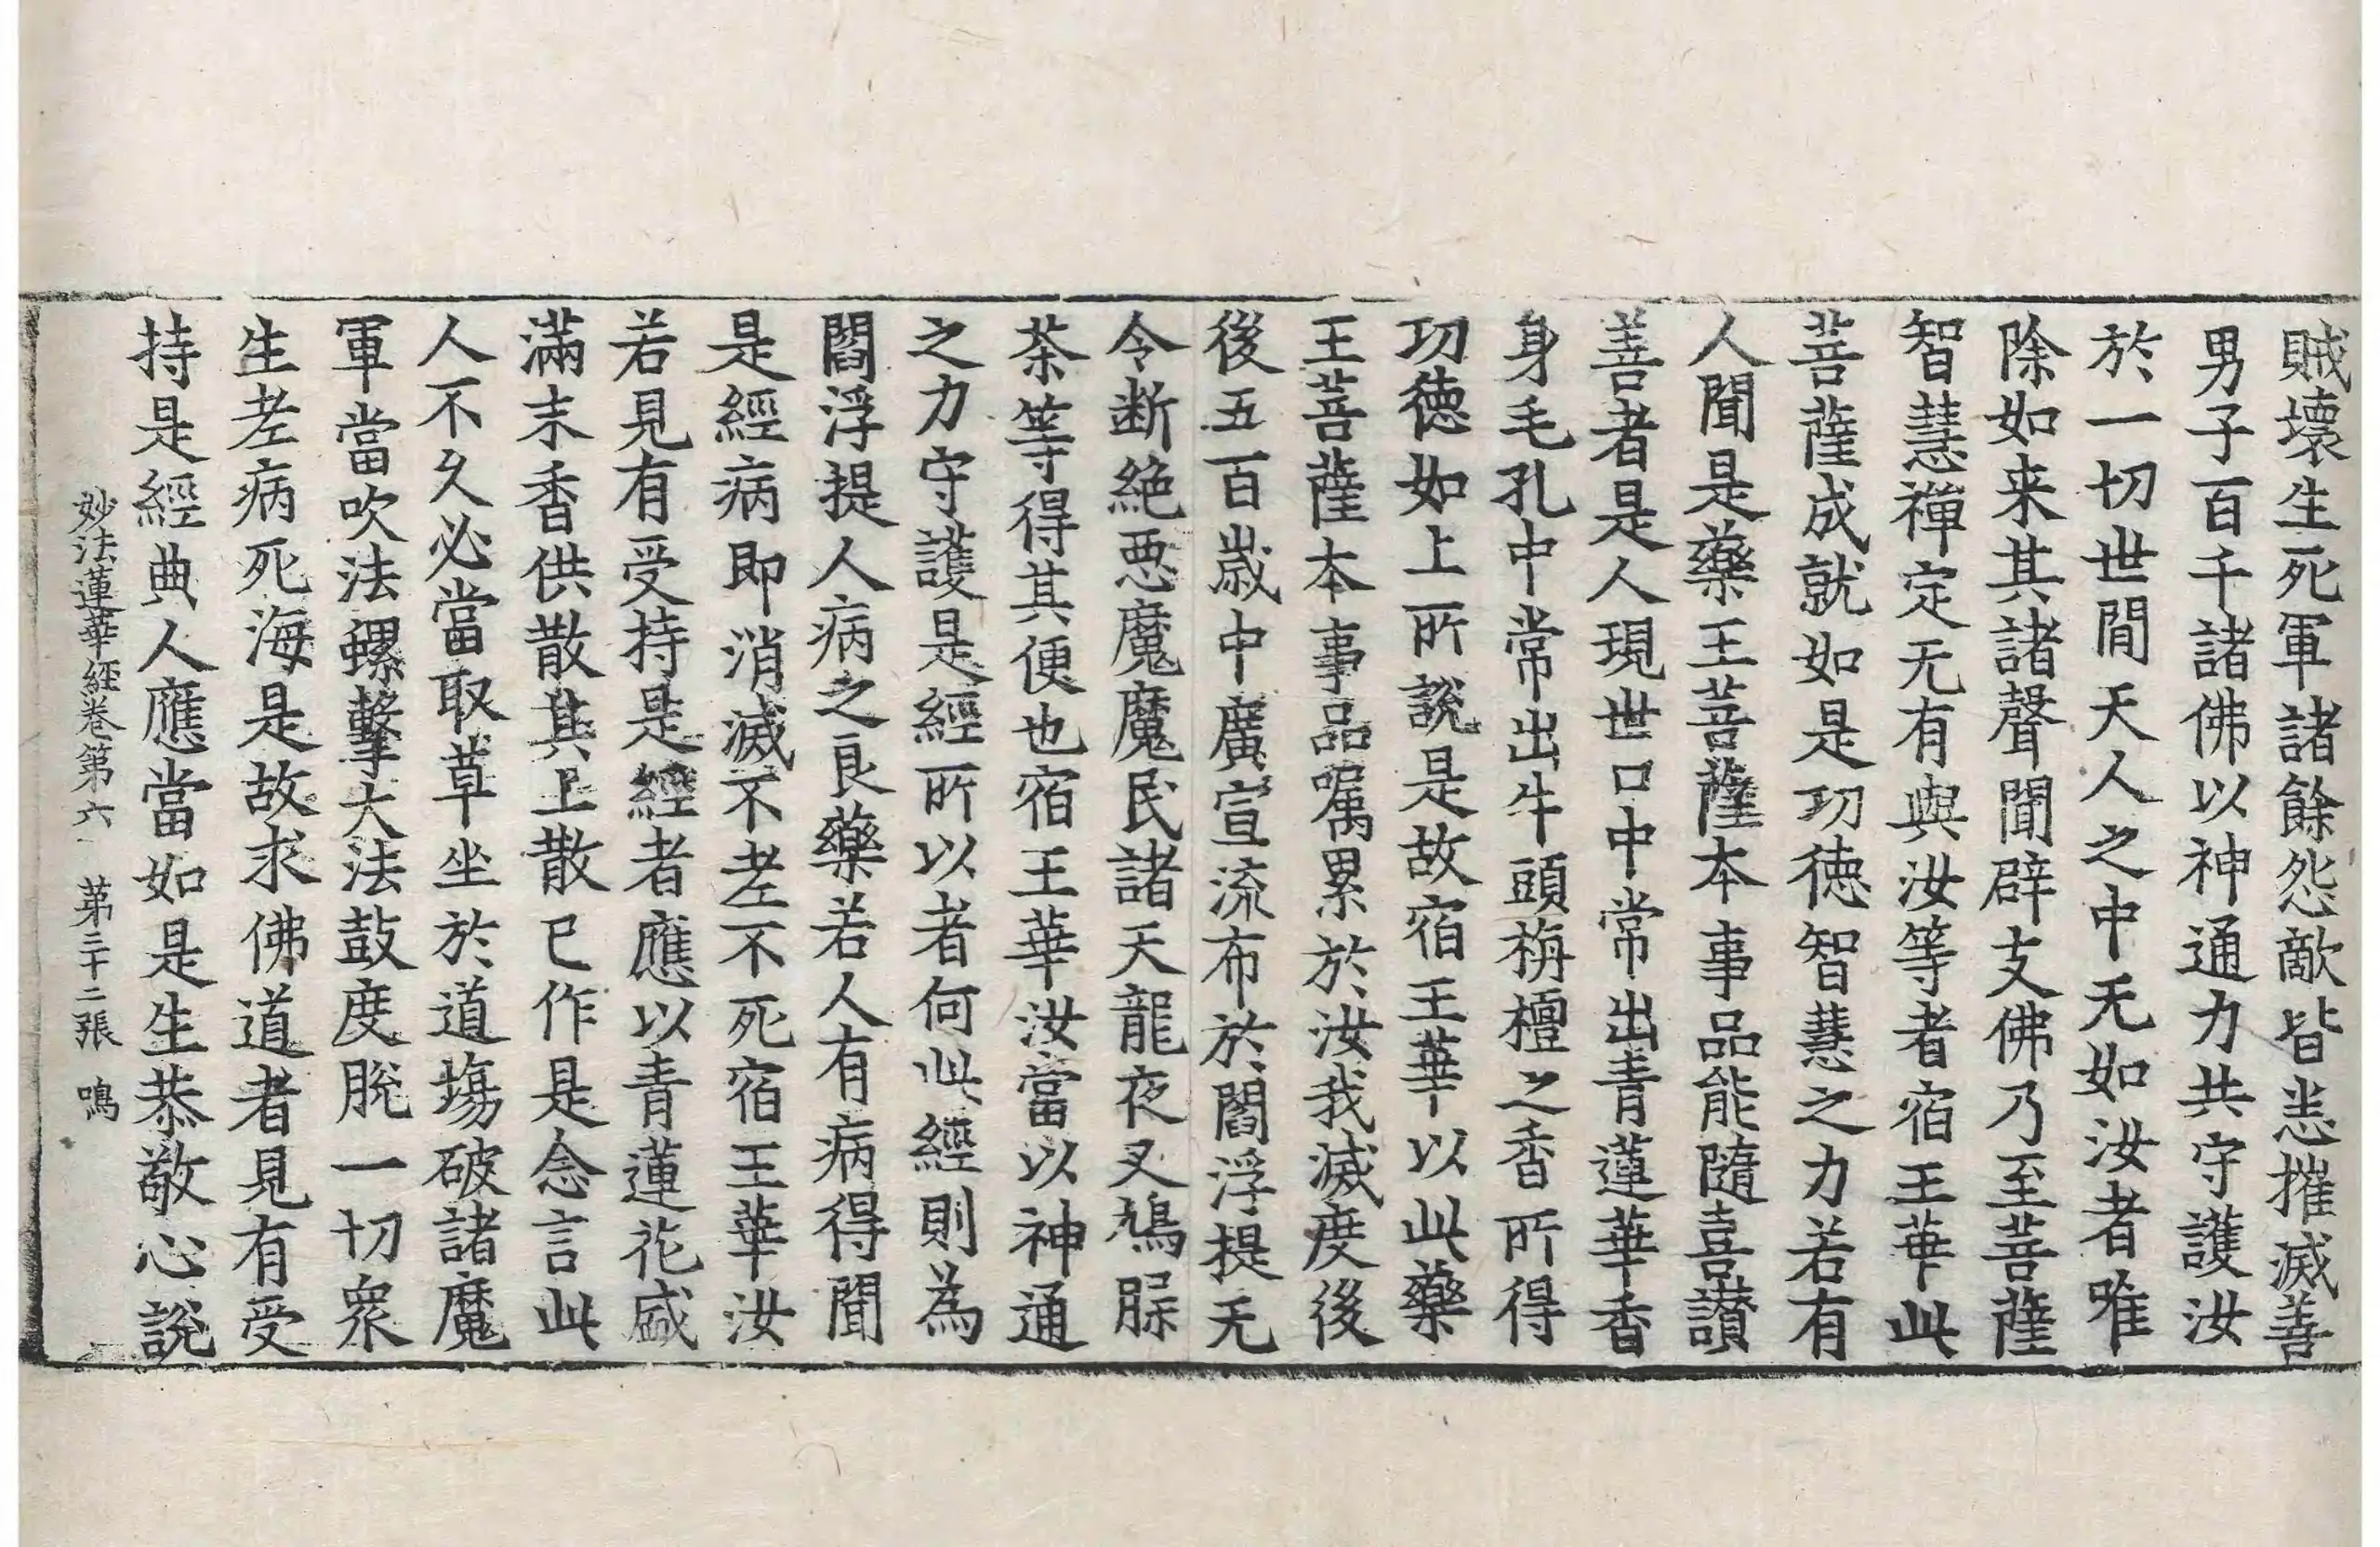 賊壞生死軍諸餘怨敵皆悉摧滅善
男子百千諸佛以神通力共守護汝
於一切世間天人之中无如汝者唯
除如来其諸聲聞辟支佛乃至菩薩
智慧禪定无有與汝等者宿王華此
菩薩成就如是功德智慧之力若有
人聞是藥王菩薩本事品能隨喜讚
善者是人現世口中常出青蓮華香
身毛孔中常出牛頭栴檀之香所得
功德如上所說是故宿王華以此藥
王菩薩本事品嘱累於汝我滅度後
後五百歲中廣宣流布於閻浮提无
令断絶惡魔魔民諸天龍夜叉鳩脲
茶等得其便也宿王華汝當以神通
之力守護是經所以者何此經則為
閻浮提人病之良藥若人有病得聞
是經病即消滅不老不死宿王華汝
若見有受持是經者應以青蓮花盛
滿末香供散其上散已作是念言此
人不久必當取草坐於道場破諸魔
軍當吹法螺擊大法鼓度脫一切衆
生老病死海是故求佛道者見有受
持是經典人應當如是生恭敬心說
妙法蓮華經卷第六 第三十二張 鳴